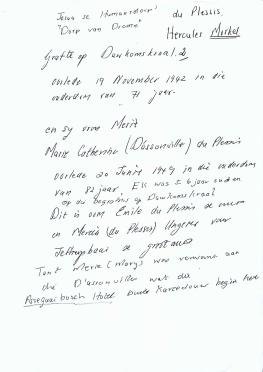 Jesu se Humansdorp du Plessis,
"Dorp van Drome" Hercules Merkel
Grafte op Dawkomskraal.2
oorlede 19 November 1942 in die
ouderdom van 71 jaar.
en sy vrou Merit
Marie Catherine (D'assonville) du Plessis
oorlede 20 Junie 1949 in die ouderdom
van 82 jaar. Ek was ± 6 jaar oud en
op die begrafnis op Dawkomskraal
Dit is oom Emile du Plessis se ouers
en Mercia (du Plessis) Ungerer van
Jeffreysbaai se grootouers
Tant Merie (Mary) was verwant aan
die D'assonvilles wat die
Assegaaibosch Hotel buite Kareedouw begin het